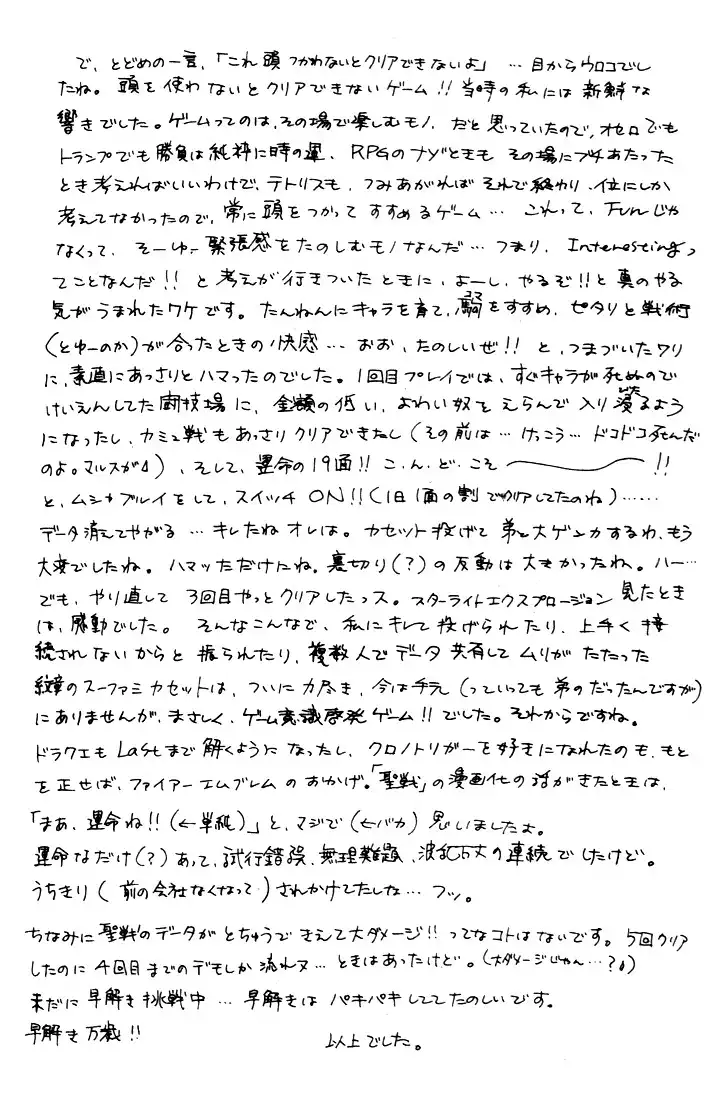 で、とどめの一言、「これ頭つかわないとクリアできないよ」…目からウロコでし
たね。頭を使わないとクリアできないゲーム!!当時の私には新鮮な
響きでした。ゲームってのは、その場で楽しむモノ、だと思っていたので、オセロでも
トランプでも勝負は紙袢に時の運、RPGのナゾときも その場にブチあたった
とき考えればいいわけで、テトリスも、つみあがれば それで終わり、位にしか
考えてなかったので、常に頭をつかって すすめるゲーム… これって、Funじゃ
なくって、そーゆー緊張感をたのしむモノなんだ…つまり、Interestingっ
てことなんだ!!と考えが行きついたときに、よーし、やるぞ!!と真のやる
気がうまれたワケです。たんねんにキャラを育て、駒をすすめ、ピタリと戦術
(とゆーのか)が合ったときの快感…おお、たのしいぜ!!と、つまづいたワリ
に、素直にあっさりとハマったのでした。1回目プレイでは、すぐキャラが死ぬので
けいえんしてた闘技場に、金額の低い、よわい奴をえらんで入り浸るよう
になったし、カミュ戦もあっさりクリアできたし(その前は…けっこう…ドコドコ死んだ
のよ。マルスが)、そして、運命の19面!!こ.ん.ど.こそ――!!
と、ムシャブルイをして、スイッチON!!(1日1面の割でクリアしてたのね)……
データ消えてやがる…キレたねオレは。カセット投げて弟と大ゲンカするわ、もう
大変でしたね。ハマッただけにね。裏切り(?)の反動は大きかったね。ハー…
でも、やり直して 3回目やっとクリアしたっス。スターライトエクスプロージョン見たとき
は、感動でした。そんなこんなで、私にキレて投げられたり、上手く接
続されないからと振られたり、複数人でデータ共有してムリがたたった
紋章のスーファミカセットは、ついに力尽き、今は手元(っていっても弟のだったんですが)
にありませんが、まさしく、ゲーム意識啓発ゲーム!!でした。それからですね。
ドラクエもLastまで解くようになったし、クロノトリガーを好きになれたのも、もと
を正せば、ファイアーエムブレムのおかげ。「聖戦」の漫画化の話がきたときは、
「まあ、運命ね!!(←単純)」と、マジで(←バカ)思いましたよ。
運命なだけ(?)あって、試行錯誤、無理難題、波乱万丈の連続でしたけど。
うちきり(前の会社なくなって)されかけてたしな…フッ。
ちなみに聖戦のデータがとちゅうできえて大ダメージ!!ってなコトはないです。5回クリア
したのに4回目までのデモしか流れヌ…ときはあったけど。(大ダメージじゃん…?)
未だに早解き挑戦中…早解きはパキパキしててたのしいです。
早解き万歳!!
以上でした。